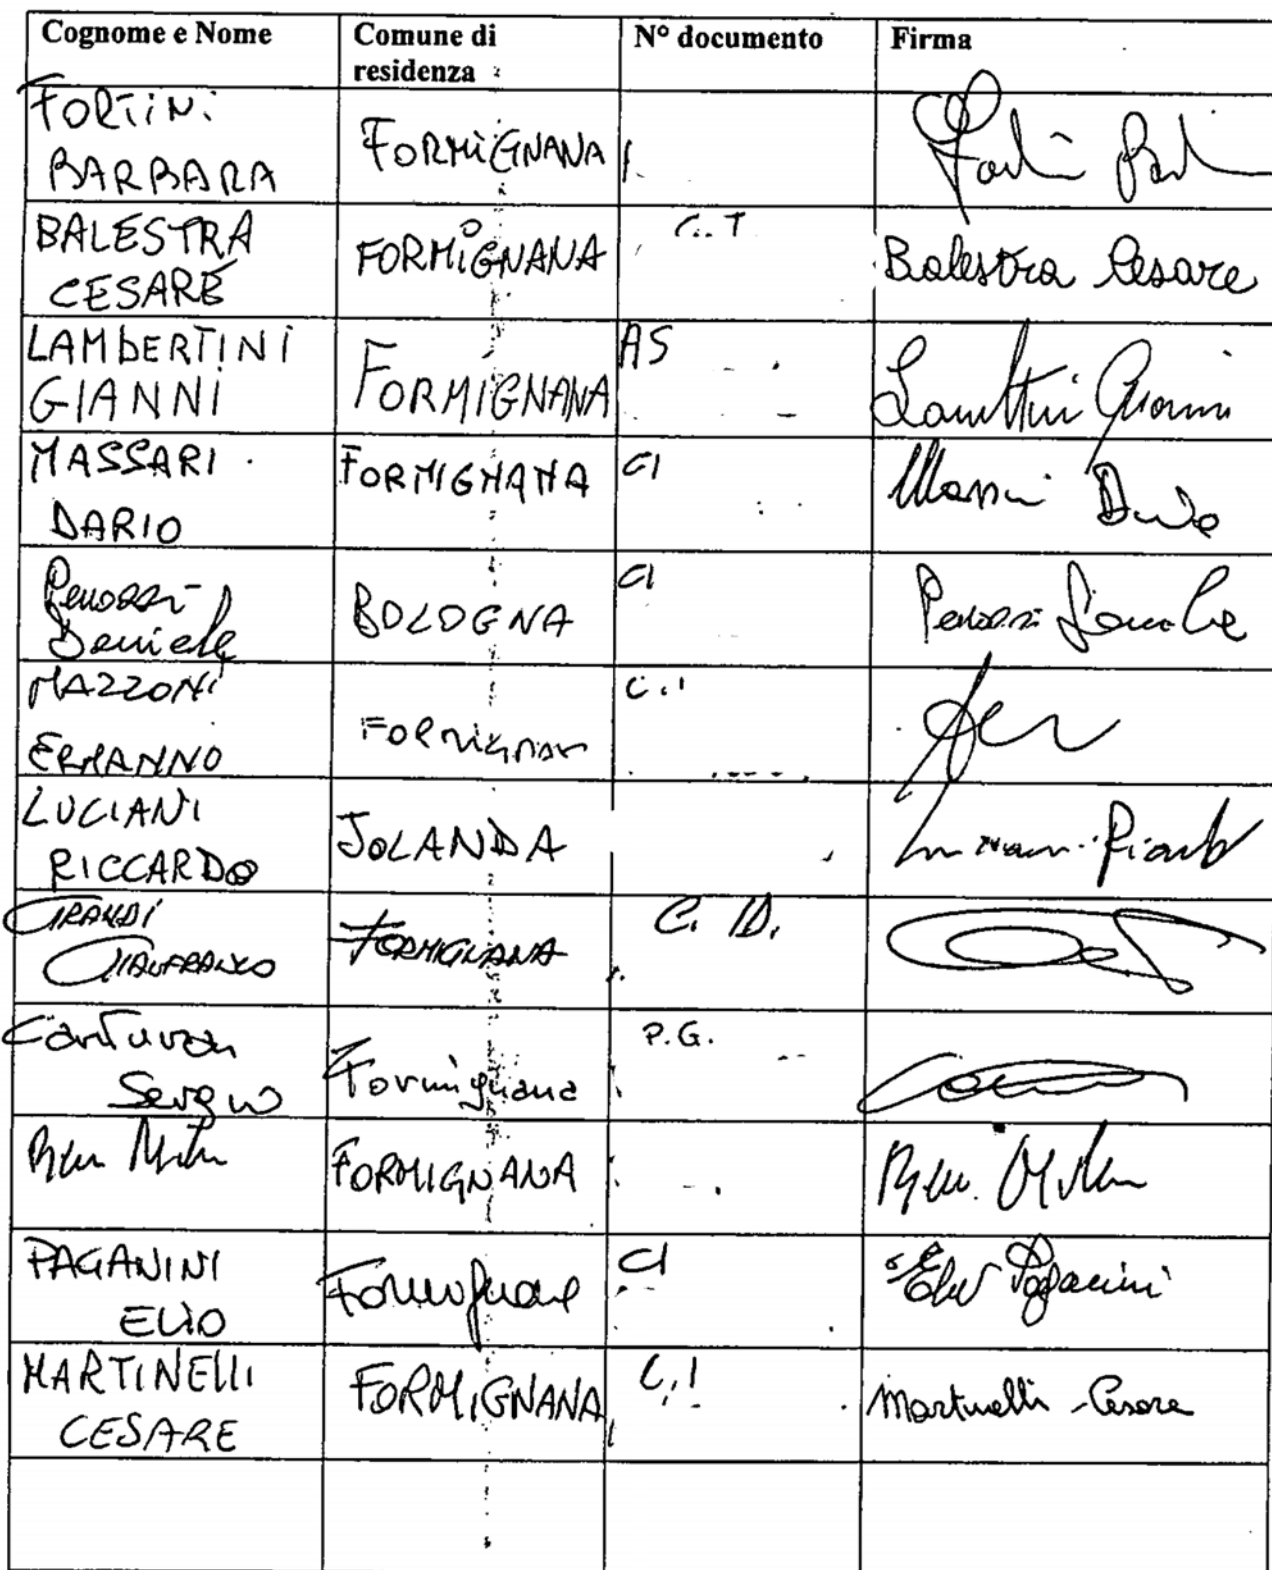 Cognome e Nome Comune di residenza N° documento Firma
FORTINI BARBARA FORMIGNANA
BALESTRA CESARE FORMIGNANA C.I Balestra Cesare
LAMBERTINI GIANNI FORMIGNANA AS Gianni
MASSARI DARIO FORMIGNANA CI
Daniele BOLOGNA CI
MAZZONI ERMANNO FORMIGNANA C.I
LUCIANI RICCARDO JOLANDA
GIANFRANCO FORMIGNANA C. ID.
Sergio Formignana P.G.
FORMIGNANA
PAGANINI ELIO Formignana CI Elio Paganini
MARTINELLI CESARE FORMIGNANA C.I Martinelli Cesare